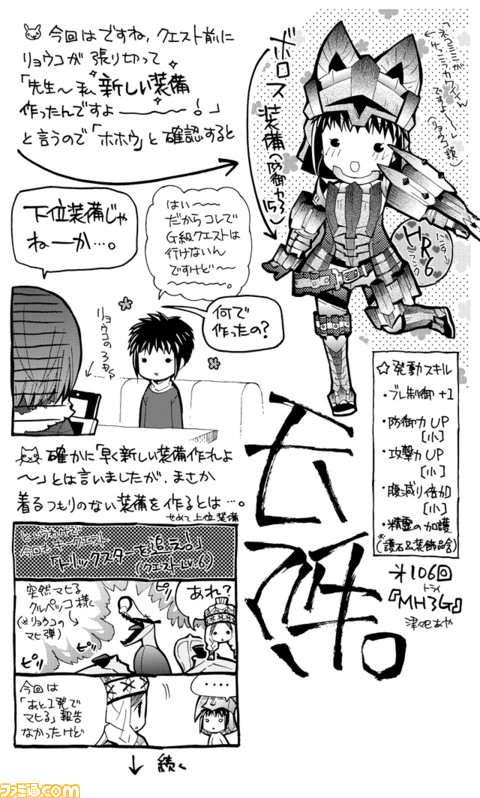 今回はですね、クエスト前に
リョウコが張り切って
「先生〜私新しい装備
作ったんですよ———！」
と言うので「ホホウ」と確認すると
ボロス装備(防御力
HR6
下位装備じゃ
ねーか…。
はい〜〜
だからコレで
G級クエストは
行けないん
ですけど〜〜
。
何で
作ったの？
リョウコの
☆発動スキル
・ブレ制御+1
・防御力UP
[小]
・攻撃力UP
[小]
・腹減り倍加
[小]
・精霊の加護
※(護石&装飾品含)
確かに「早く新しい装備作れよ
〜」とは言いましたが、まさか
着るつもりのない装備を作るとは…。
せめて上位装備
「トリックスターを追え！」
(クエストLv.6)
突然マヒる
クルペッコ様
(※リョウコの
マヒ弾)
ピリ
ピリ
あれ？
今回は
「あと1発で
マヒる」報告
なかったけど
‥‥
↓続く
106回
『MH3G』
トライ
津々巳あや
ファミ通.com